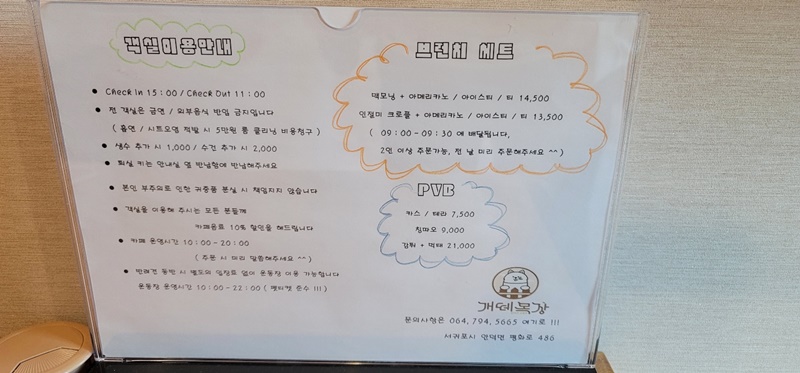 객실이용안내
• Check In 15 : 00 / Check Out 11 : 00
• 전 객실은 금연 / 외부음식 반입 금지입니다
( 흡연 / 시트오염 적발 시 5만원 룸 클리닝 비용청구 )
• 생수 추가 시 1,000 / 수건 추가 시 2,000
• 퇴실 키는 안내실 옆 반납함에 반납해주세요
• 본인 부주의로 인한 귀중품 분실 시 책임지지 않습니다
• 객실을 이용해 주시는 모든 분들께
카페음료 10% 할인을 해드립니다
• 카페 운영시간 10 : 00 - 20 : 00
( 주문 시 미리 말씀해주세요 ^^ )
• 반려견 동반 시 별도의 입장료 없이 운동장 이용 가능합니다
운동장 운영시간 10 : 00 - 22 : 00 ( 펫티켓 준수 !!! )
브런치 세트
맥모닝 + 아메리카노 / 아이스티 / 티 14,500
인절미 크로플 + 아메리카노 / 아이스티 / 티 13,500
( 09 : 00 - 09 : 30 에 배달됩니다,
2인 이상 주문가능, 전 날 미리 주문해주세요 ^^ )
PUB
카스 / 테라 7,500
칭따오 9,000
감튀 + 먹태 21,000
개떼목장
문의사항은 064, 794, 5665 여기로 !!!
서귀포시 안덕면 평화로 486